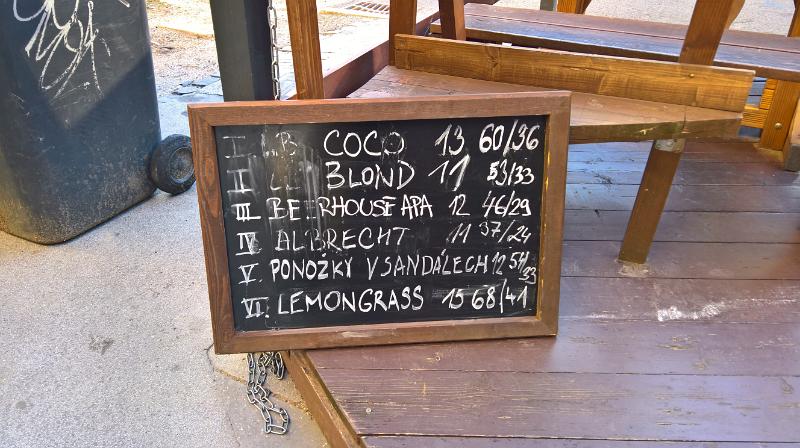 I COCO 13 60/36
I BLOND 11 53/33
III BEERHOUSE APA 12 46/29
IV ALBRECHT 11 37/24
V. PONOŽKY V SANDÁLECH 12 54/33
VI. LEMONGRASS 15 68/41